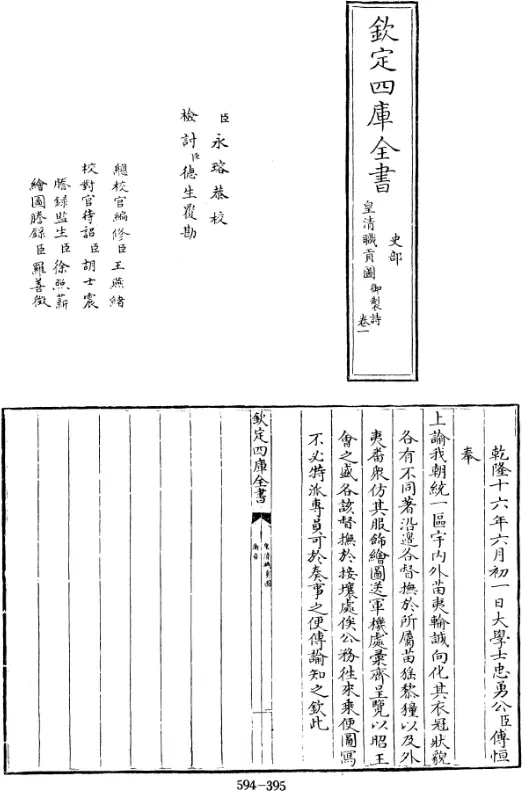 欽定四庫全書
史部
皇清職貢圖御製詩
卷一
臣永瑢恭校
檢討臣德生覆勘
總校官編修臣王燕緒
校對官待詔臣胡士震
謄錄監生臣徐照薪
繪圖謄錄臣羅善徵
乾隆十六年六月初一日大學士忠勇公臣傅恒
奉
上諭我朝統一區宇內外苗夷輸誠向化其衣冠狀貌
各有不同著沿邊各督撫於所屬苗猺黎獞以及外
夷番衆仿其服飾繪圖送軍機處彙齊呈覽以昭王
會之盛各該督撫於接壤處俟公務往來乘便圖寫
不必特派專員可於奏事之便傳諭知之欽此
欽定四庫全書
皇清職貢圖
594-395